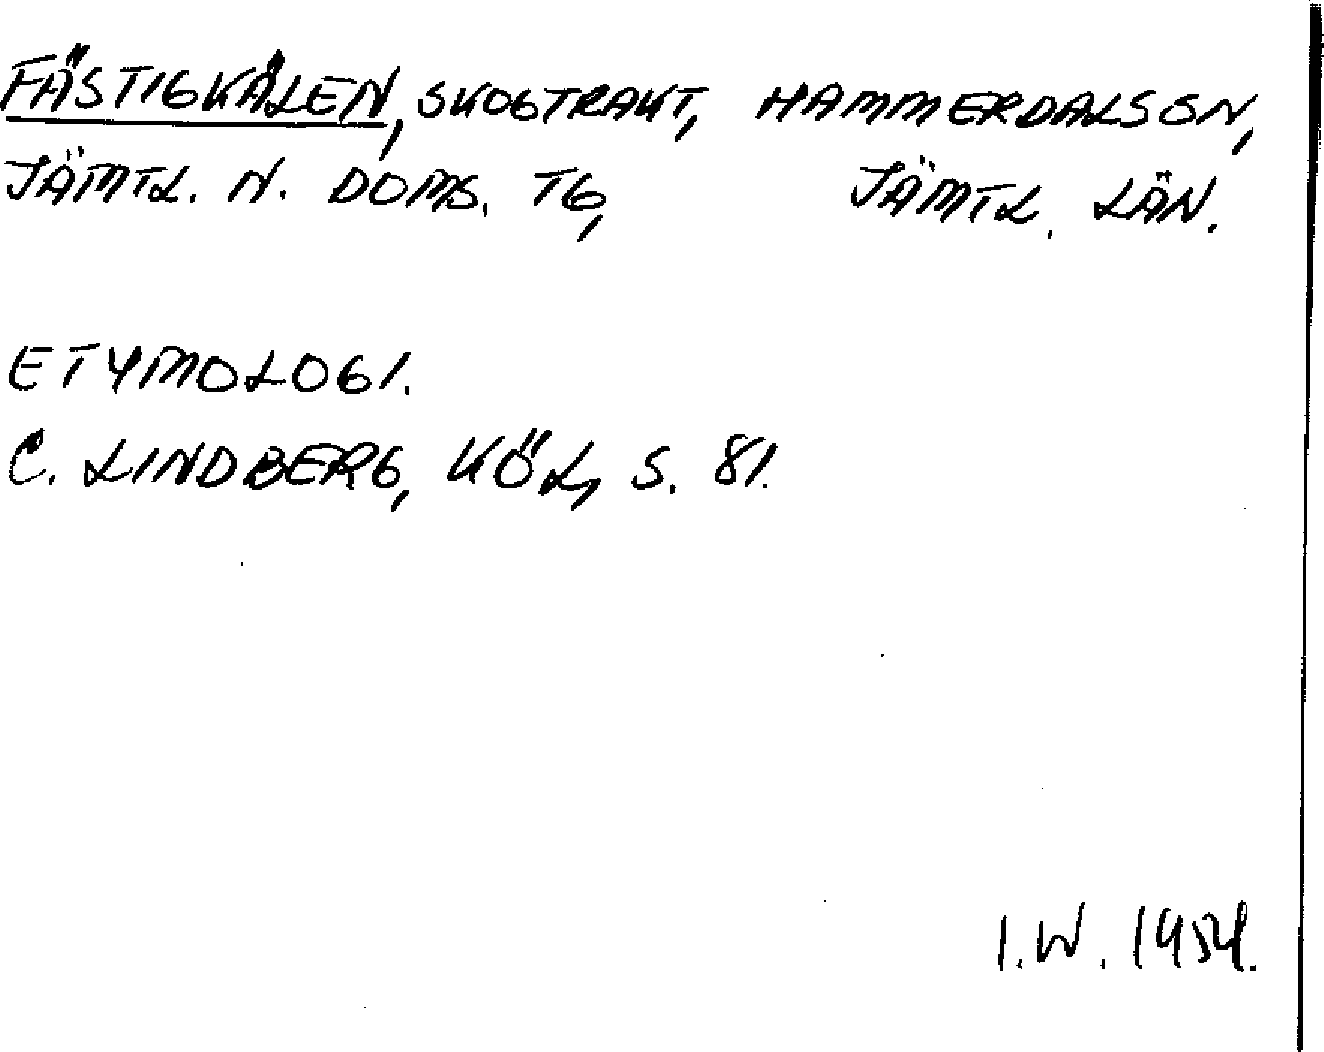 FÄSTIGKÄLEN, SKOGTRAKT, HAMMERDALS SN,
JÄMTL. N. DOMS. TG, JÄMTL. LÄN.
ETYMOLOGI.
C. LINDBERG, KÖL, S. 81.
I.W. 1954.